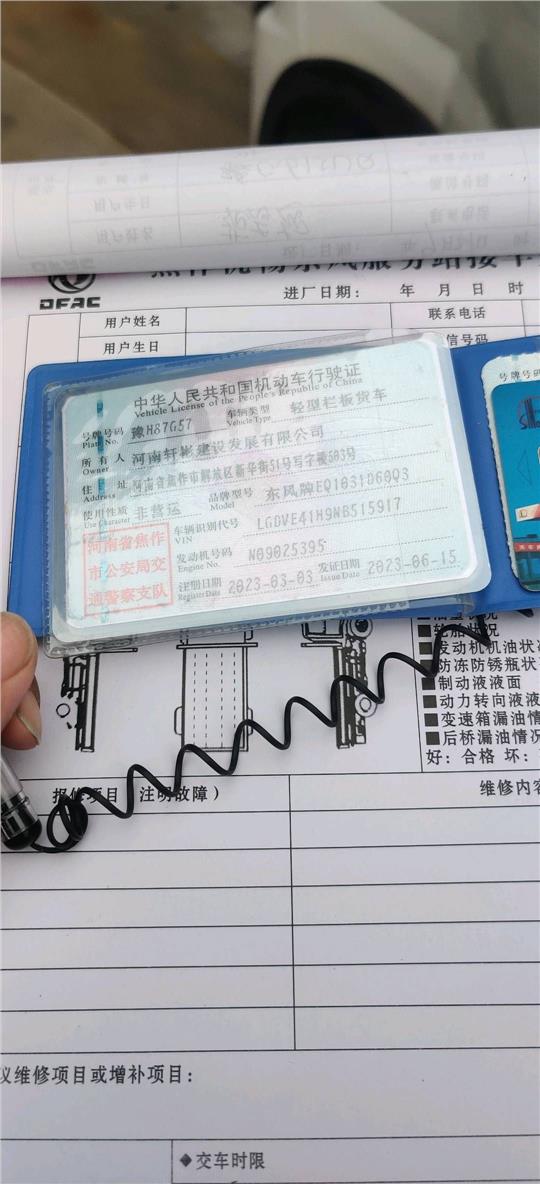 DFAC
进厂日期： 年 月 日 时
用户姓名
联系电话
用户生日
信号码
中华人民共和国机动车行驶证
Vehicle License of the People's Republic of China
号牌号码 豫H87G57 车辆类型 轻型栏板货车
Plate No. Vehicle Type
所有人 河南轩彬建设发展有限公司
Owner
住址 河南省焦作市解放区新华街51号写字楼503号
Address
使用性质 非营运 品牌型号 东风牌EQ1031D60Q3
Use Character Model
车辆识别代号 LGDVE41H9NB515917
VIN
发动机号码 N09025395
Engine No.
注册日期 2023-03-03 发证日期 2023-06-15
Register Date Issue Date
河南省焦作
市公安局交
通警察支队
号牌号码
发动机机油状
防冻防锈瓶状
制动液液面
动力转向液液
变速箱漏油情
后桥漏油情况
好：合格 坏：
报修项目（注明故障）
维修内容
议维修项目或增补项目：
◆交车时限